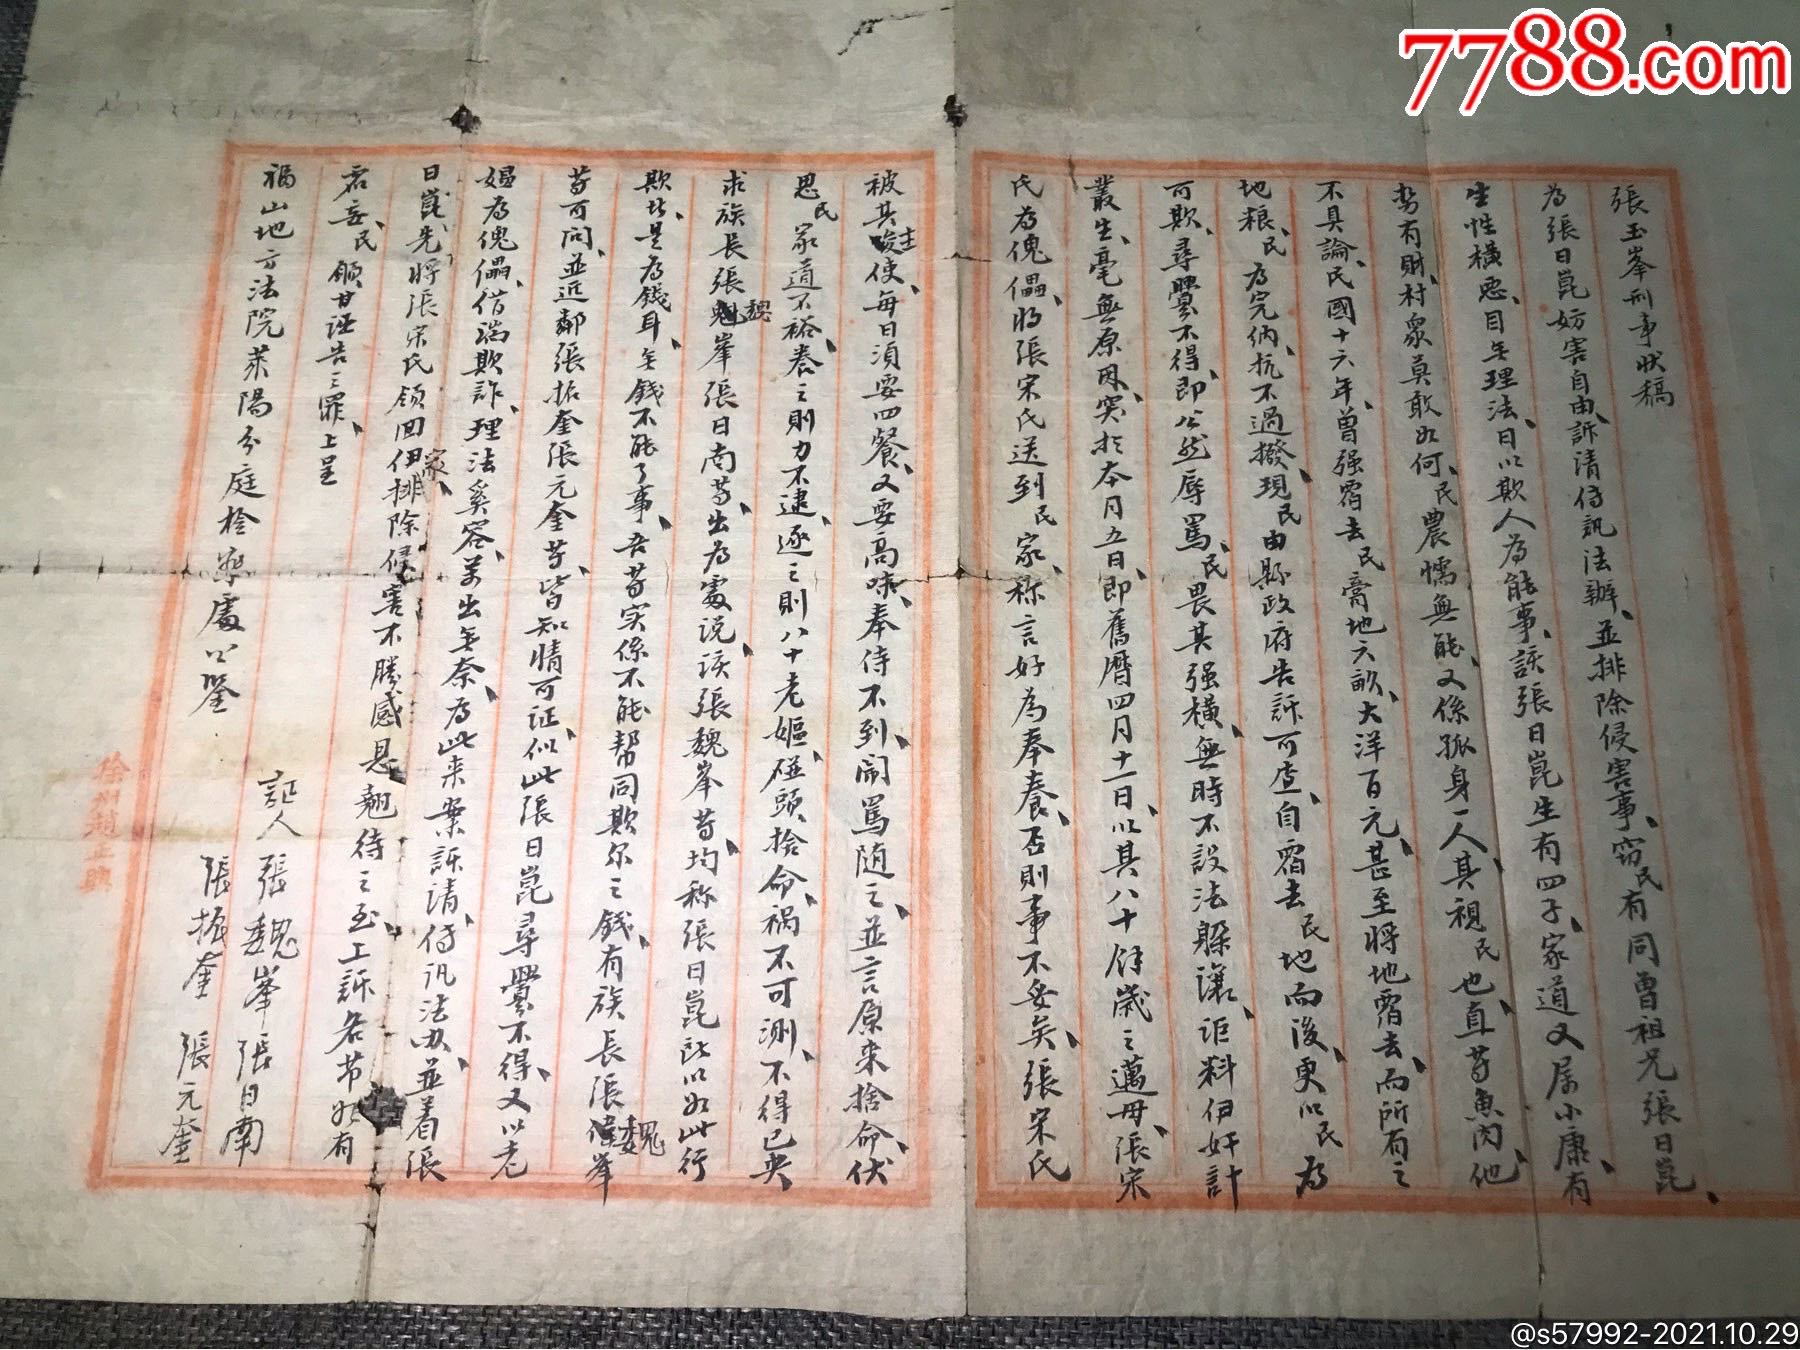 7788.com
張玉峯刑事狀稿
為張日崑妨害自由、訴清傳訊法辦、並排除侵害事、窃民有同曾祖兄張日崑、
生性橫惡、目無理法、日以欺人為能事、該張日崑生有四子、家道又屬小康、有
勢有財、村衆莫敢如何、民農懦無能、又係孤身一人、其視民也直等魚肉、他
不具論、民國十六年、曾强霸去民膏地六畝、大洋百元、甚至將地霸去、而所有之
地粮、民為完納、抗不過撥、現民由縣政府告訴可查、自霸去民地而後、更以民為
可欺、尋釁不得、即公然辱罵、民畏其强橫、無時不設法躲讓、詎料伊奸計
叢生、毫無原因、突於本月五日、即舊曆四月十一日、以其八十餘歲之邁母、張宋
氏為傀儡、將張宋氏送到民家、称言好為奉養、否則事不妥矣、張宋氏
被其主使、每日須要四餐、又要高味、奉侍不到、鬧罵随之、並言原来捨命、伏
思民家道不裕、養之則力不逮、逐之則八十老嫗、碰頭捨命、禍不可測、不得已央
求族長張魏峯張日南等、出為處説、该張魏峯等、均称張日崑所以如此行
欺者、是為錢耳、無錢不能了事、吾等实係不能帮同欺尔之錢、有族長張魏峯
等可问、並近鄰張振奎張元奎等、皆知情可证、似此張日崑尋釁不得、又以老
嫗為傀儡、借端欺詐、理法奚容、萬出無奈、為此来案訴请、傳訊法办、並着張
日崑先將張宋氏領回伊家、排除侵害、不勝感恩翹待之至、上訴各节如有
虚妄、民願甘誣告之罪、上呈
福山地方法院萊陽分庭檢察處公鑒
証人 張魏峯 張日南
張振奎 張元奎
徐州趙正興
@s57992-2021.10.29